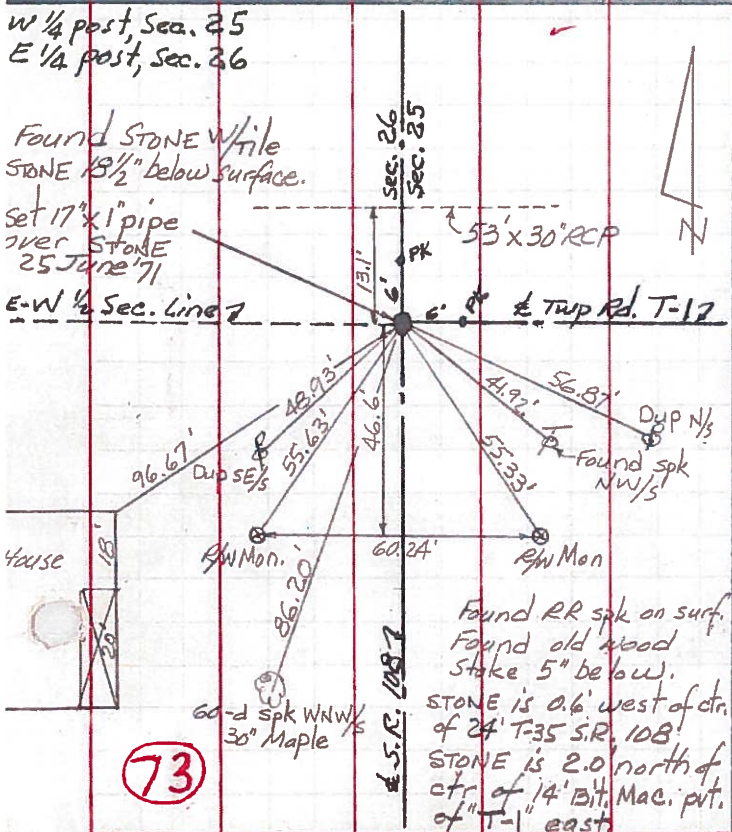 W 1/4 post, Sec. 25
E 1/4 post, Sec. 26
Found STONE W/tile
STONE 18 1/2" below surface.
Set 17" x 1" pipe
over STONE
25 June '71
Sec. 26
Sec. 25
53' x 30" RCP
13.1'
PK
6'
6'
PK
E-W 1/2 Sec. Line
℄ Twp Rd. T-17
N
96.67'
48.93'
55.63'
46.6'
41.92'
56.87'
55.33'
Dup SE/s
Dup N/s
Found spk
NW/s
R/W Mon.
60.24'
R/W Mon
House
18'
20'
86.20'
60-d spk WNW/s
30" Maple
℄ S.R. 108
Found RR spk on surf.
Found old wood
Stake 5" below.
STONE is 0.6' west of ctr.
of 24' T-35 S.R. 108
STONE is 2.0' north of
ctr of 14' Bit. Mac. pvt.
of "T-1" east
73